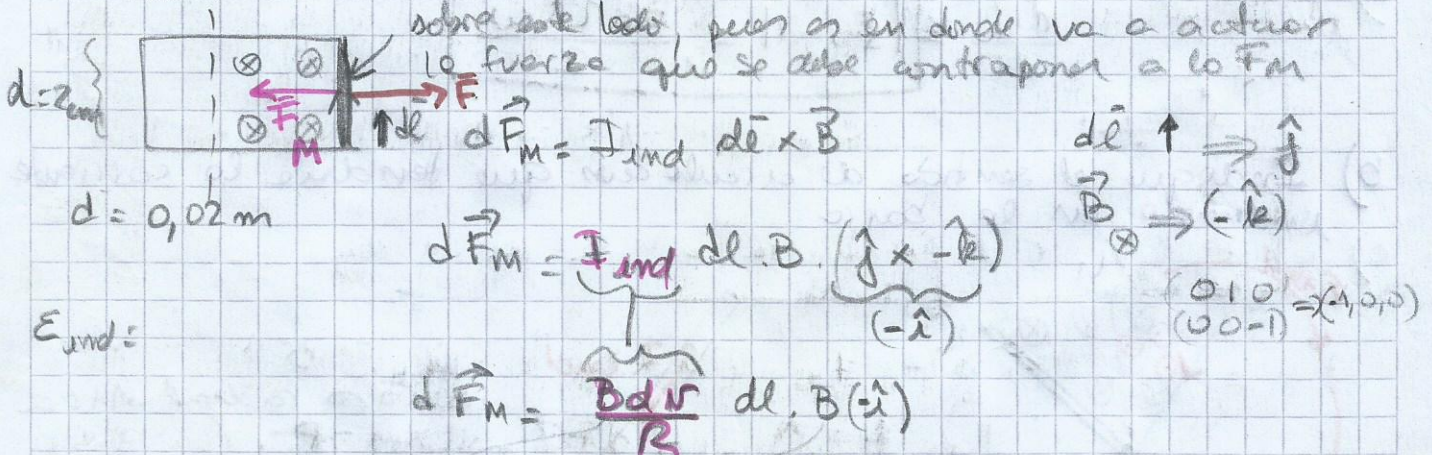 sobre este lado, pues es en donde va a actuar
la fuerza que se debe contraponer a la Fm
d=2cm
F
F M
dl
d = 0,02 m
dF⃗_M = I_ind dl̄ × B⃗
dl̄ ↑ ⇒ ĵ
B⃗ ⊗ ⇒ (-k̂)
dF⃗_M = I_ind dl . B . (ĵ × -k̂)
(-î)
(0 1 0
(0 0 -1) ⇒ (-1,0,0)
ε_ind =
dF⃗_M = Bdv/R dl . B(-î)